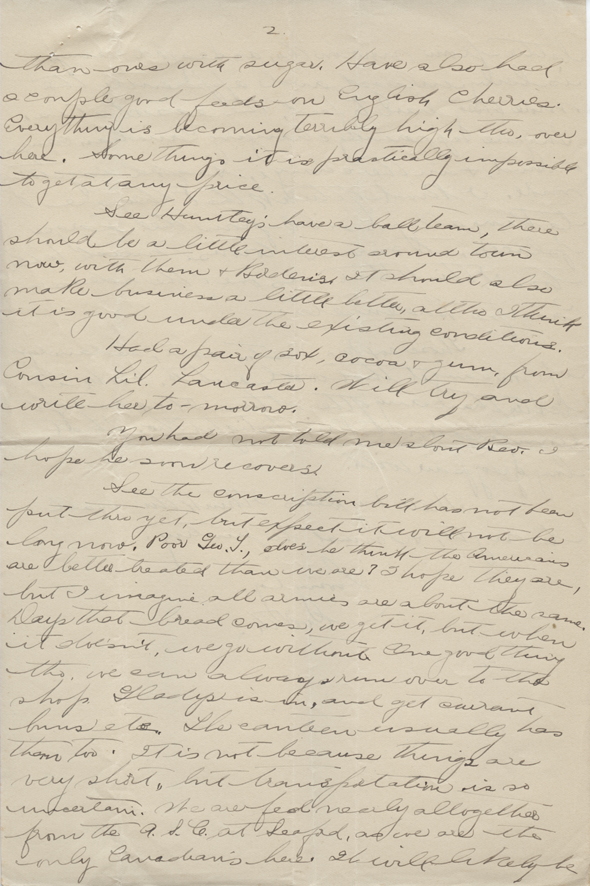 2.
than ones with sugar. Have also had
a couple good feeds on English Cherries.
Everything is becoming terribly high tho, over
here. Some things it is practically impossible
to get at any price.
See Huntley's have a ball team, there
should be a little interest around town
now, with them & It should also
make business a little better, altho I think
it is good under the existing conditions.
Had a pair of sox, cocoa & gum, from
Cousin Lil. Lancaster. Will try and
write her to-morrow.
You had not told me about Bev. I
hope he soon recovers.
See the conscription bill has not been
put thro yet, but expect it will not be
long now. Poor Geo. T., does he think the Americans
are better treated than we are? I hope they are,
but I imagine all armies are about the same.
Days that bread comes, we get it, but when
it doesn't, we go without. One good thing
tho, we can always run over to the
shop Gladys is in, and get currant
buns etc. The canteen usually has
them too. It is not because things are
very short, but transportation is so
uncertain. We are fed nearly altogether
from the A.S.C. at Seaford, as we are the
only Canadians here. It will likely be